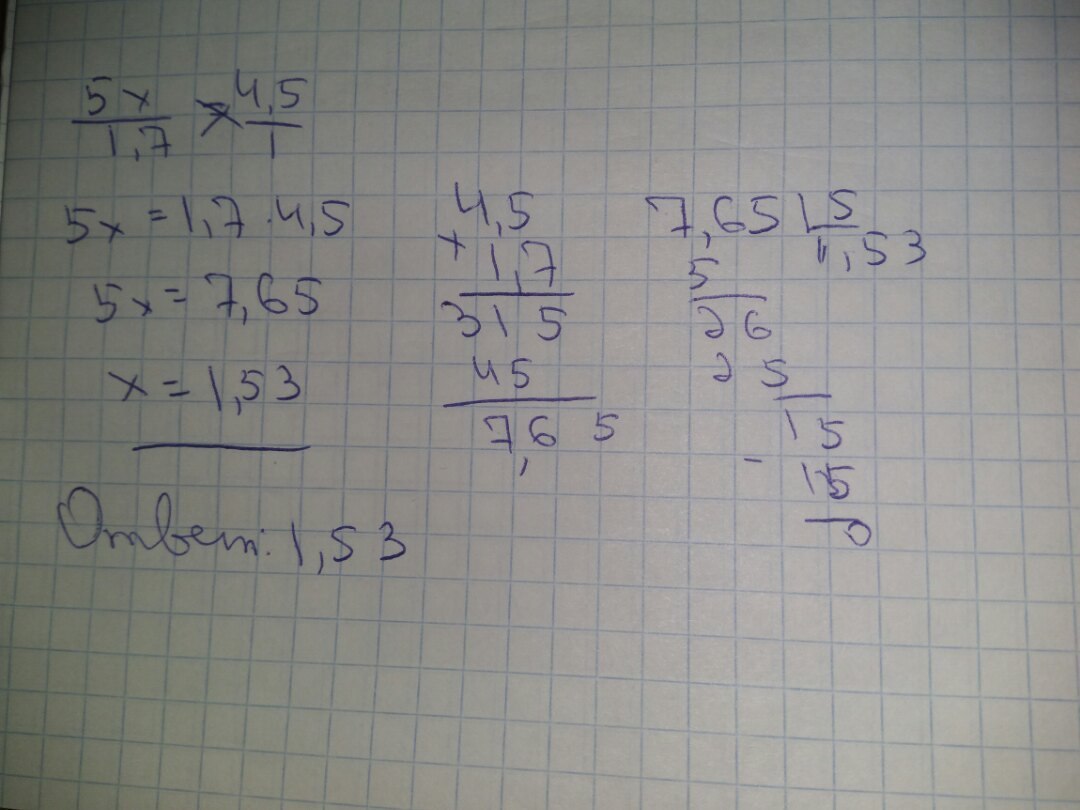 5x 4,5
1,7 × 1
5x = 1,7 · 4,5
5x = 7,65
x = 1,53
4,5
× 1,7
315
45
7,65
7,65 | 5
5 1,53
26
25
15
- 15
0
Ответ: 1,53